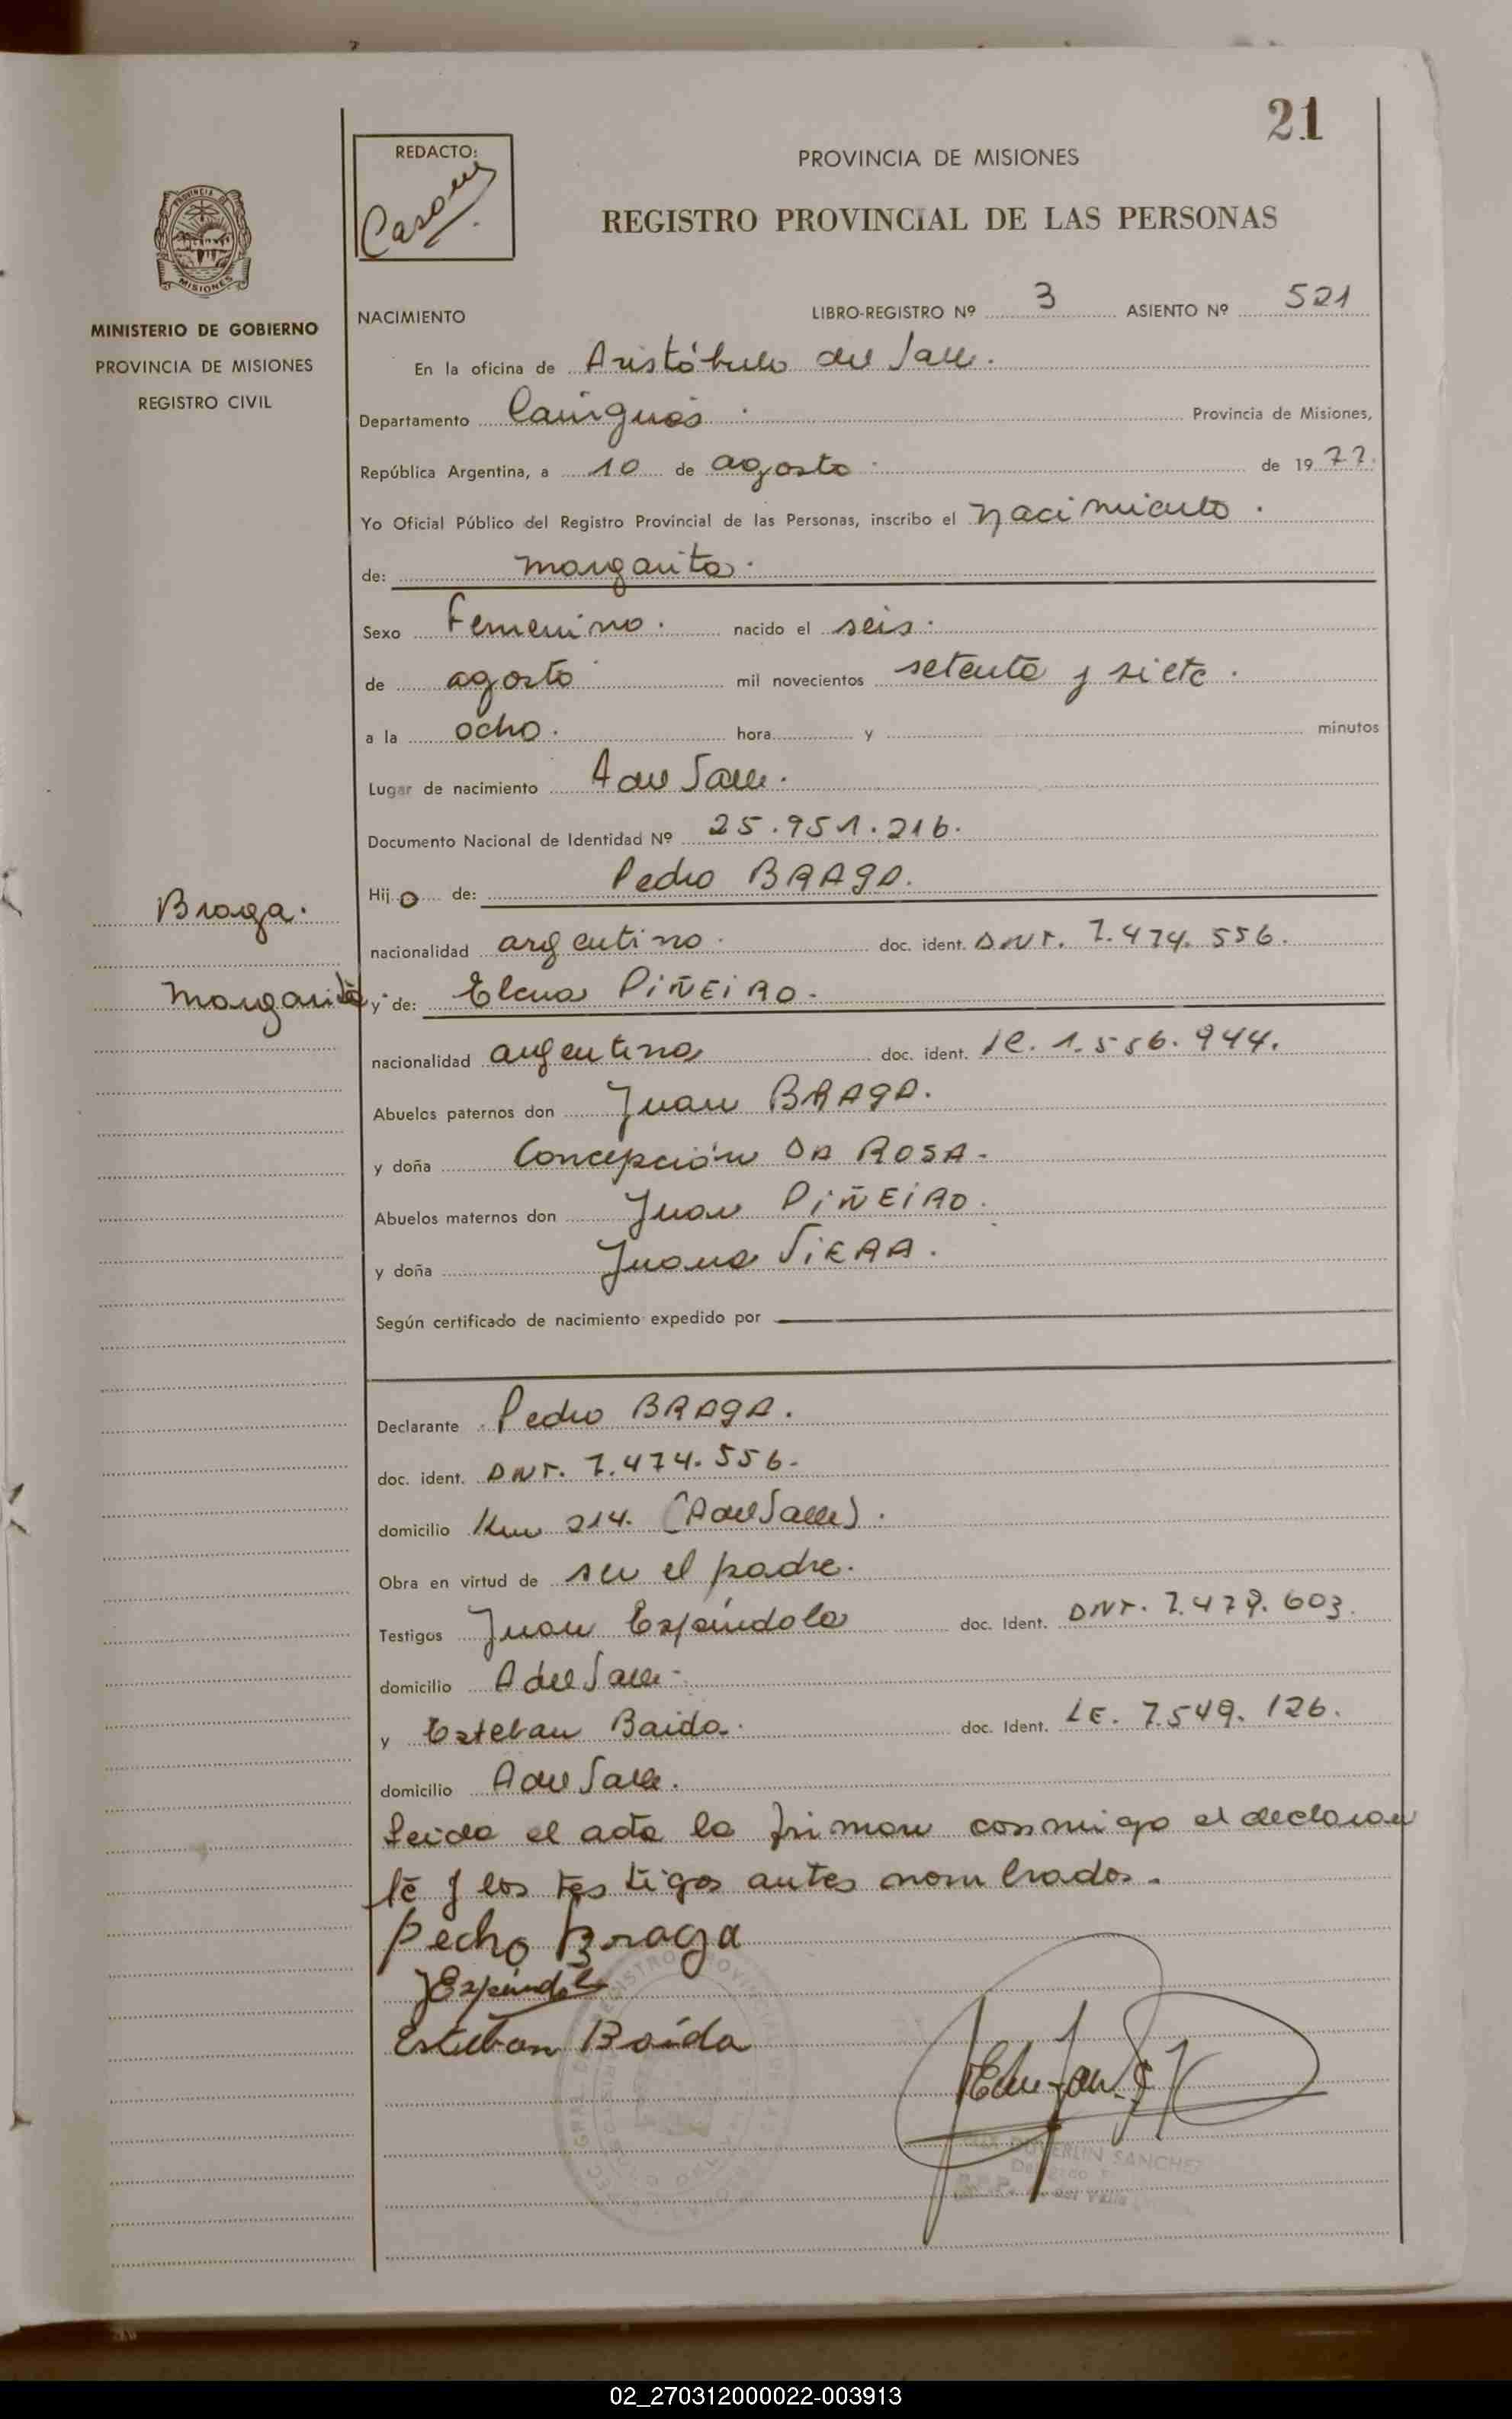 21
REDACTO:
PROVINCIA DE MISIONES
REGISTRO PROVINCIAL DE LAS PERSONAS
PROVINCIA
MISIONES
MINISTERIO DE GOBIERNO
PROVINCIA DE MISIONES
REGISTRO CIVIL
NACIMIENTO LIBRO-REGISTRO Nº 3 ASIENTO Nº 521
En la oficina de Aristóbulo del Valle.
Departamento Cainguás. Provincia de Misiones,
República Argentina, a 10 de agosto. de 1977.
Yo Oficial Público del Registro Provincial de las Personas, inscribo el nacimiento.
de: Margarita.
Sexo Femenino. nacido el seis.
de agosto mil novecientos setenta y siete.
a la ocho. hora y minutos
Lugar de nacimiento A del Valle.
Documento Nacional de Identidad Nº 25.951.216.
Hija de: Pedro BRAGA.
Braga.
nacionalidad argentino. doc. ident. DNI. 7.474.556.
Margarita
y de: Elena PIÑEIRO.
nacionalidad argentina doc. ident. LC. 1.556.944.
Abuelos paternos don Juan BRAGA.
y doña Concepción DA ROSA.
Abuelos maternos don Juan PIÑEIRO.
y doña Juana VIERA.
Según certificado de nacimiento expedido por
Declarante Pedro BRAGA.
doc. ident. DNI. 7.474.556.
domicilio Km 214. (A del Valle).
Obra en virtud de ser el padre.
Testigos Juan Espíndola doc. Ident. DNI. 7.479.603.
domicilio A del Valle.
y Esteban Baida. doc. Ident. LE. 7.549.126.
domicilio A del Valle.
Leida el acta la firman conmigo el declaran
te y los testigos antes nombrados.
Pedro Braga
JEspíndola
Esteban Baida
SANCHEZ
del Valle
02_270312000022-003913